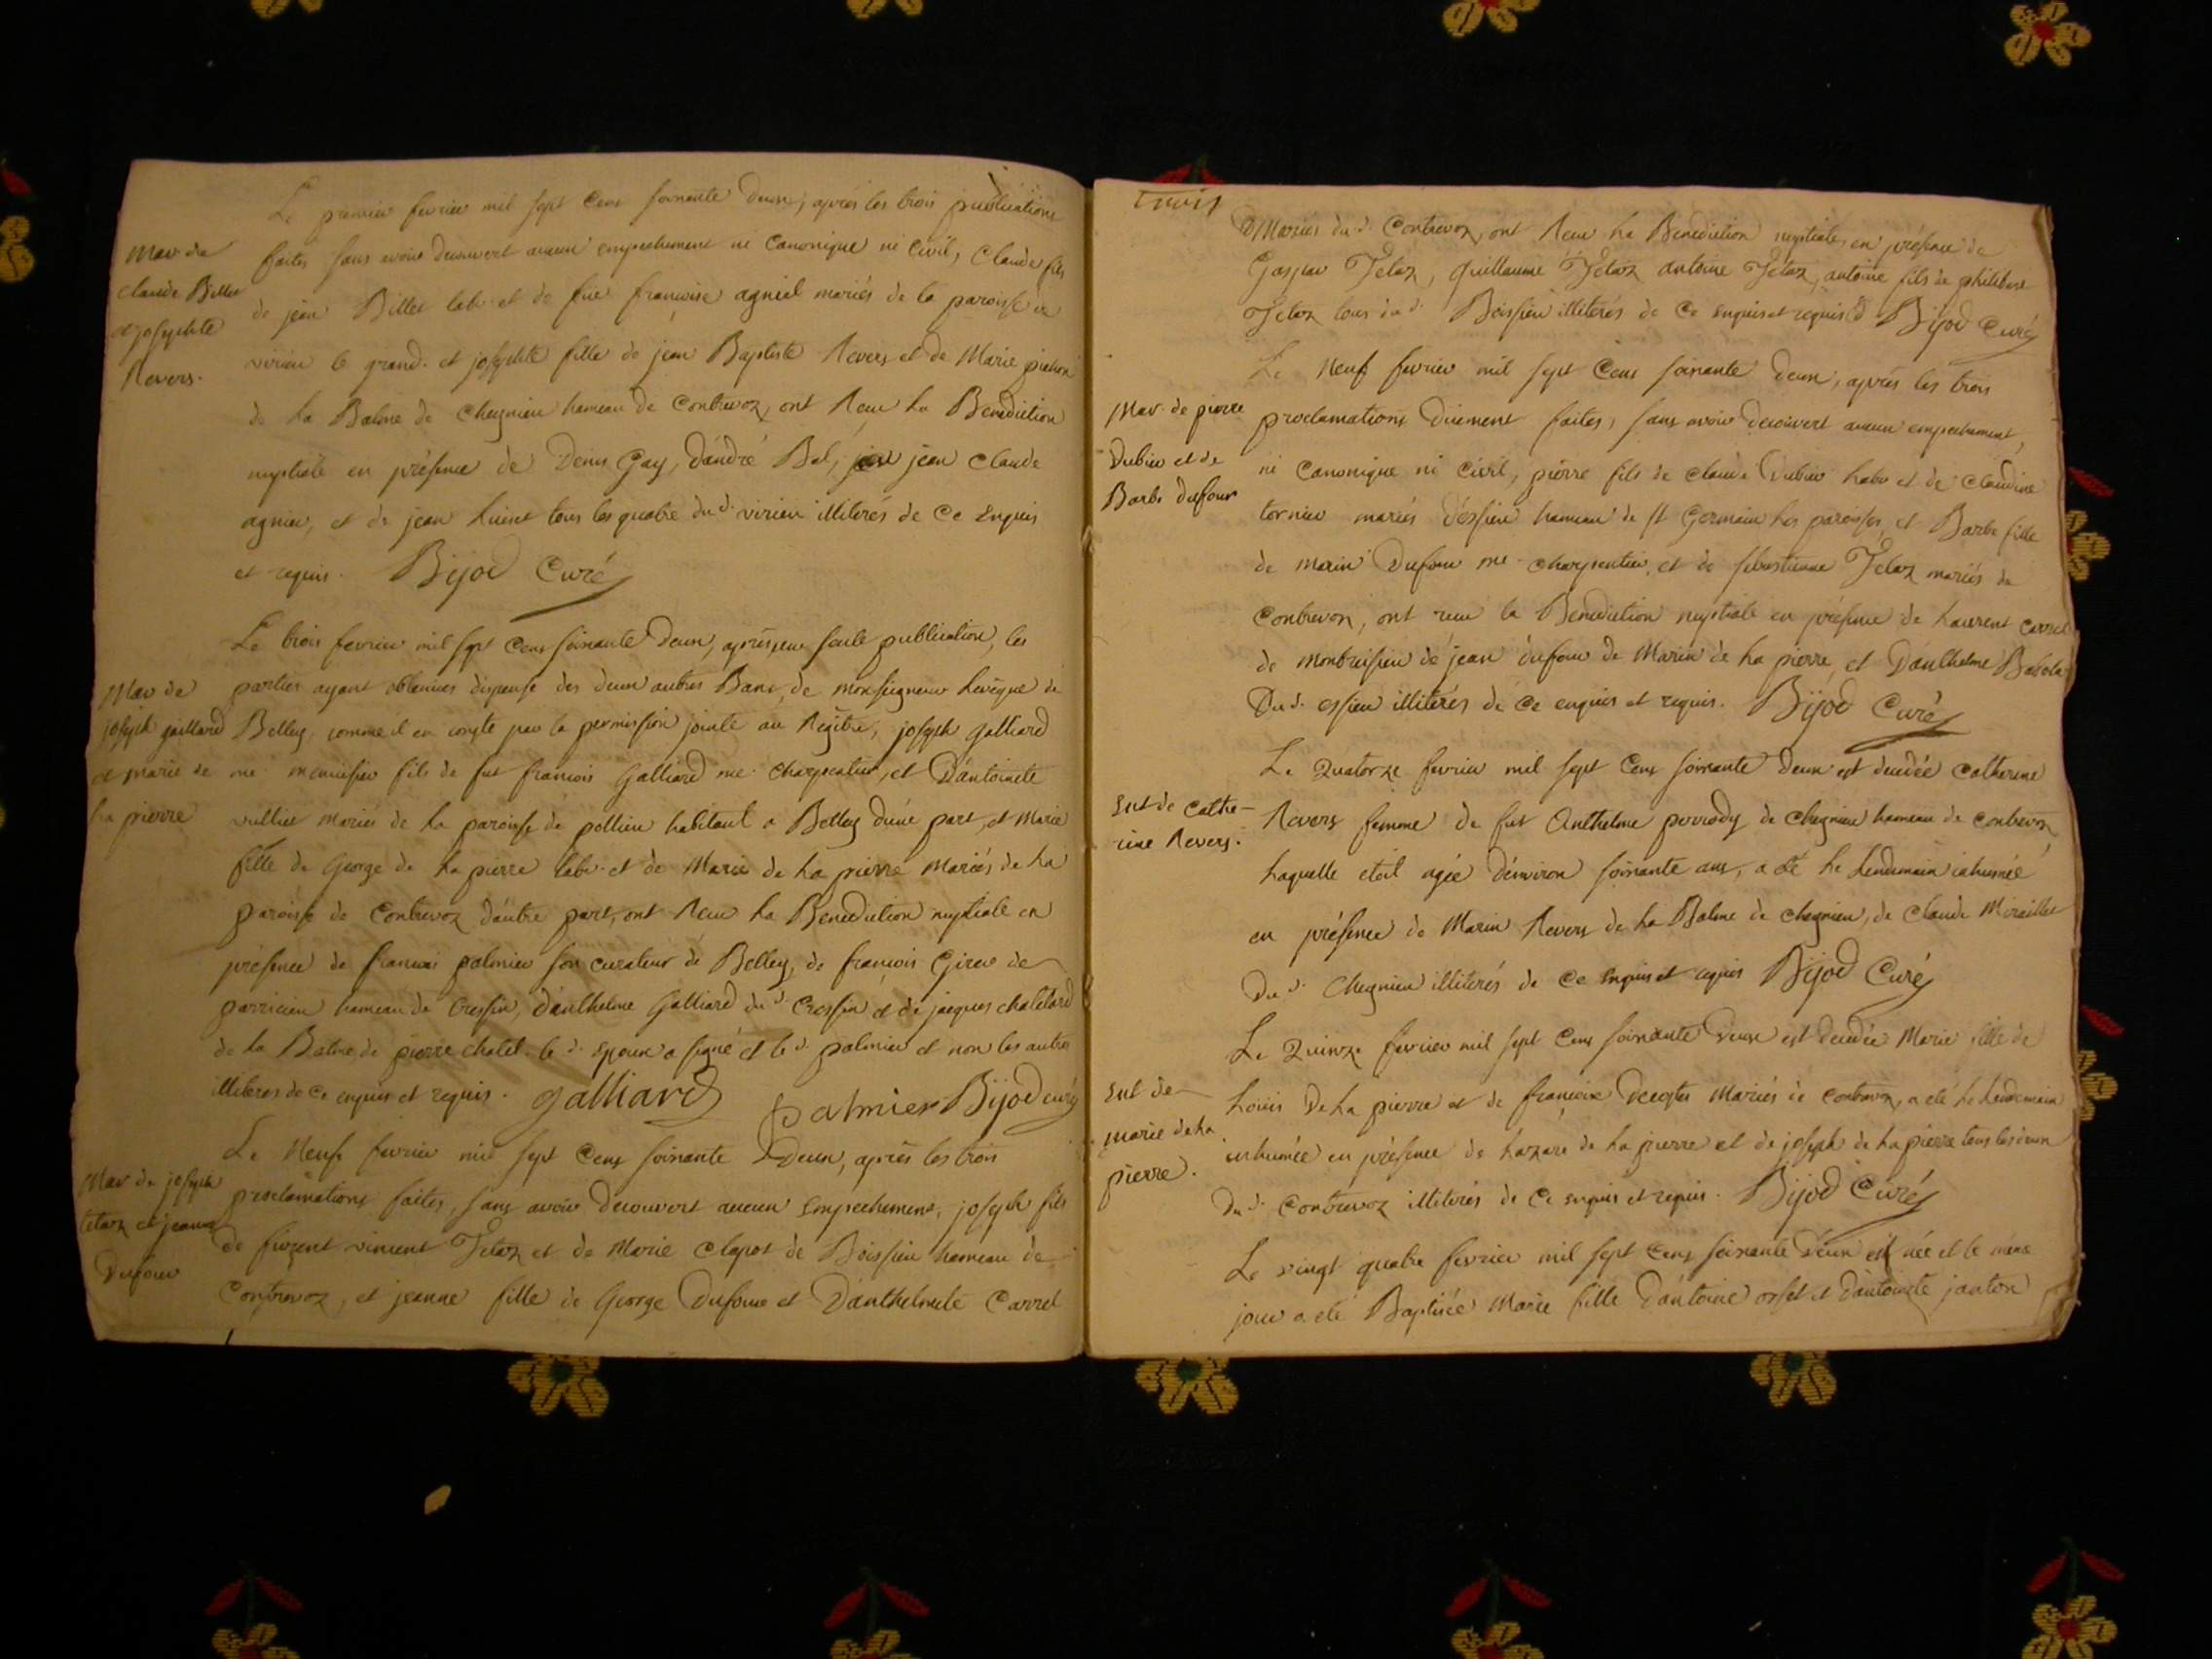 Le premier fevrier mil sept Cens soixante deux, après les trois publications
Mar de
Claude Billet
et josephte
Revers.
faites sans avoir decouvert aucun empechement ni Canonique ni Civil, Claude fils
de jean Billet lab. et de fue françoise agniel mariés de la paroisse de
virieu le grand. et josephte fille de jean Baptiste Revers et de Marie pichon
de La Balme de Chegnieu hameau de Contrevoz, ont Reçu La Benediction
nuptiale en présence de Denis Gay, d'andré Bal, jean Claude
agnieu, et de jean huinet tous les quatre du d. virieu illiterés de Ce Enquis
et requis. Bijod Curé
Le trois fevrier mil sept Cens soixante Deux, après une seule publication, les
Mar de
joseph gaillard
et marie de
La pierre
parties ayant obtenues dispense des deux autres Bans, de monseigneur Leveque de
Belley, comme il en conste par la permission jointe au Registre, joseph galliard
me. menuisier fils de fut francois Galliard me. Charpentier, et D'antoinete
vulliet mariés de La paroisse de pollieu habitant a Belley d'une part, et Marie
fille de George de La pierre labr. et de Marie de La pierre Mariés de La
paroisse de Contrevoz d'autre part, ont Reçu La Benediction nuptiale en
présence de francois palmier son curateur de Belley, de francois Girer de
parricieu hameau de Cressieu, d'anthelme Galliard du d. Cressieu et de jacques chatelard
de La Balme de pierre chatel. le d. Epoux a signé et le d. palmier et non les autres
illiteres de Ce enquis et requis. galliard palmier Bijod curé
Le Neuf fevrier mil sept Cens soixante Deux, après les trois
Mar de joseph
tetaz et jeanne
Dufour
proclamations faites, sans avoir découvert aucun Empechement, joseph fils
de vincent Tetaz et de Marie Clapot de Boissieu hameau de
Contrevoz, et jeanne fille de George Dufour et D'anthelmete Carrel
Trois
Mariés du d. Contrevoz, ont Reçu La Benediction nuptiale, en présence de
Gaspar Tetaz, Guillaume Tetaz antoine Tetaz, antoine fils de philibert
Tetaz tous du d. Boissieu illiterés de Ce enquis et requis Bijod Curé
Le Neuf fevrier mil sept Cens soixante deux, après les trois
Mar. de pierre
Dubieu et de
Barbe dufour
proclamations duement faites, sans avoir découvert aucun empechement,
ni Canonique ni Civil, pierre fils de Claude Dubieu labr et de Claudine
tornier mariés d'essieu hameau de st Germain Les paroisses, et Barbe fille
de marin Dufour me. Charpentier, et de sebastienne Tetaz mariés de
Contrevoz, ont reçu la Benediction nuptiale en présence de Laurent Carrel
de montbreisieu de jean dufour de Marin de La pierre, et D'anthelme
Du d. essieu illiterés de Ce enquis et requis. Bijod Curé
Le Quatorze fevrier mil sept Cens soixante deux est decedée Catherine
Ent de Cathe-
rine Revers.
Revers femme de fut Anthelme perrody de Chegnieu hameau de Contrevoz,
Laquelle etoit agée d'environ soixante ans, a été Le Lendemain inhumée
en présence de Marin Revers de La Balme de Chegnieu, de Claude Miraillet
Du d. Chegnieu illiterés de Ce enquis et requis Bijod Curé
Le Quinze fevrier mil sept Cens soixante deux est decedée Marie fille de
Ent de
marie de La
pierre.
Louis De La pierre et de françoise Mariés de Contrevoz, a été Le Lendemain
inhumée en présence de Lazare de La pierre et de joseph de La pierre tous les deux
Du d. Contrevoz illiterés de Ce enquis et requis. Bijod Curé
Le vingt quatre fevrier mil sept Cens soixante deux est née et le même
jour a été Baptisée Marie fille D'antoine orset et D'antoinete janton